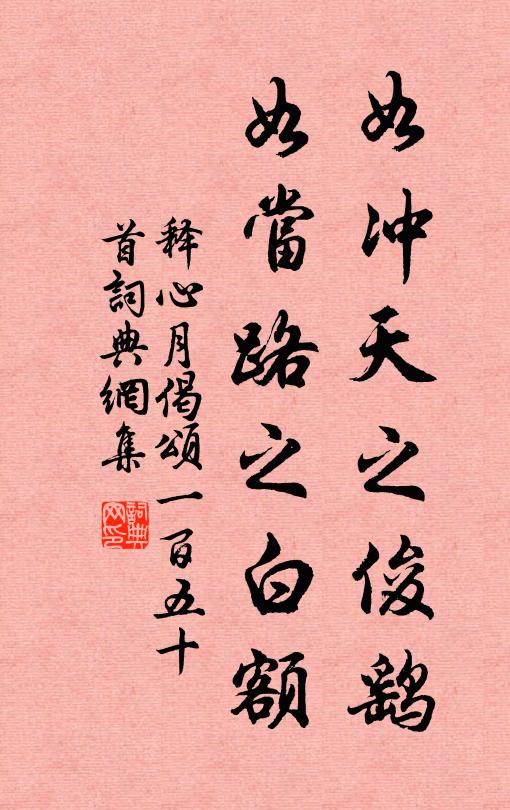 如冲天之俊鹞
如當路之白额
释心月偈頌一百五十
首詞典網集
詞典
网印